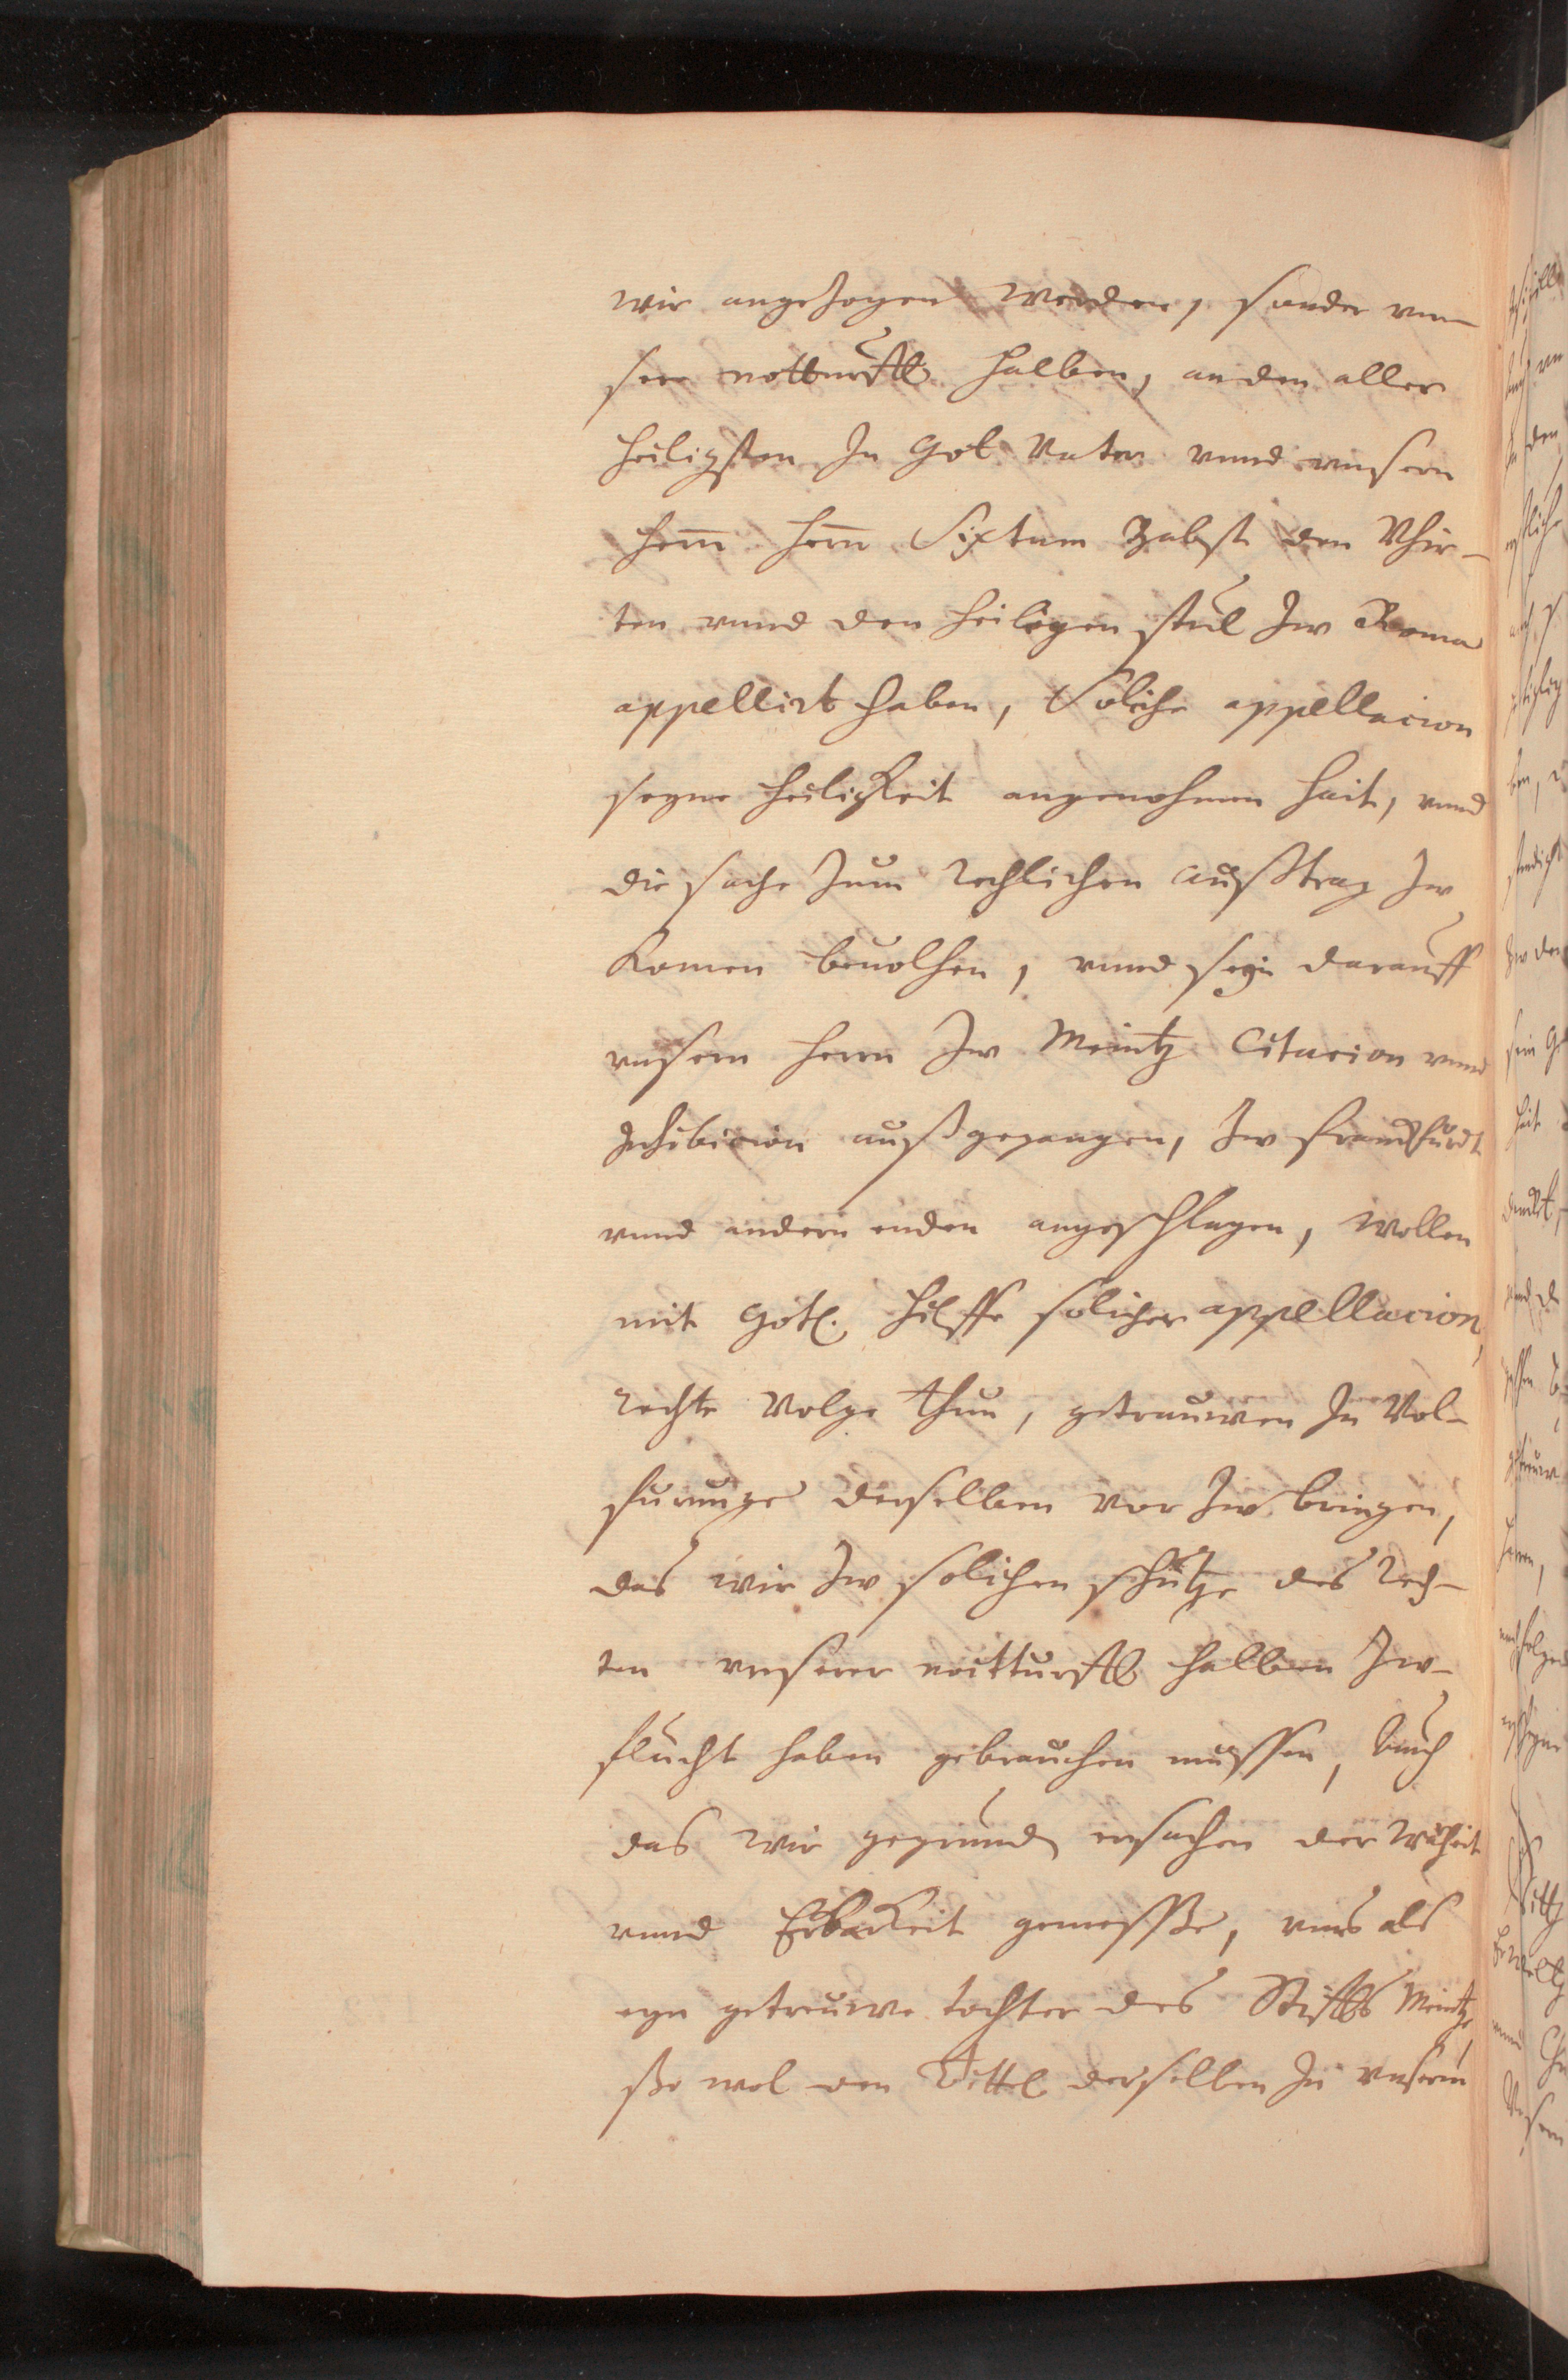 wir angezogen werden, sonder vn-
ser notturfft halben, an den aller
heiligsten In Got Vater vnnd vnsern
hern hern Sixtum Babst den Vhir-
ten vnnd den heiligen stul zw Roma
appellirt haben, Soliche appellacion
seyne heiligkeit angenohmen hait, vnnd
die sache zum rechlichen außtrag zw
komen beuolhen, vnnd seyn darauff
vnsern herrn zw Meintz Citacion vnnd
Inhibicion außgegangen, zw franckfurdt
vnnd andern enden angeschlagen, wollen
mit gotl. hilffe solicher appellacion,
rechte Volge thun, getrauwen In Vol-
furunge derselben vor zw bringen,
das wir zw solichen schutze des rech-
ten vnserer noitturfft halben zw-
flucht haben gebrauchen mussen, Auch
das wir gegrund vrsachen der waheit
vnnd Erbarkeit gemesße, vns als
eyn getreuwe tochter des Stiffts Meintz,
ßo wol den Tittel derselben In vnserm